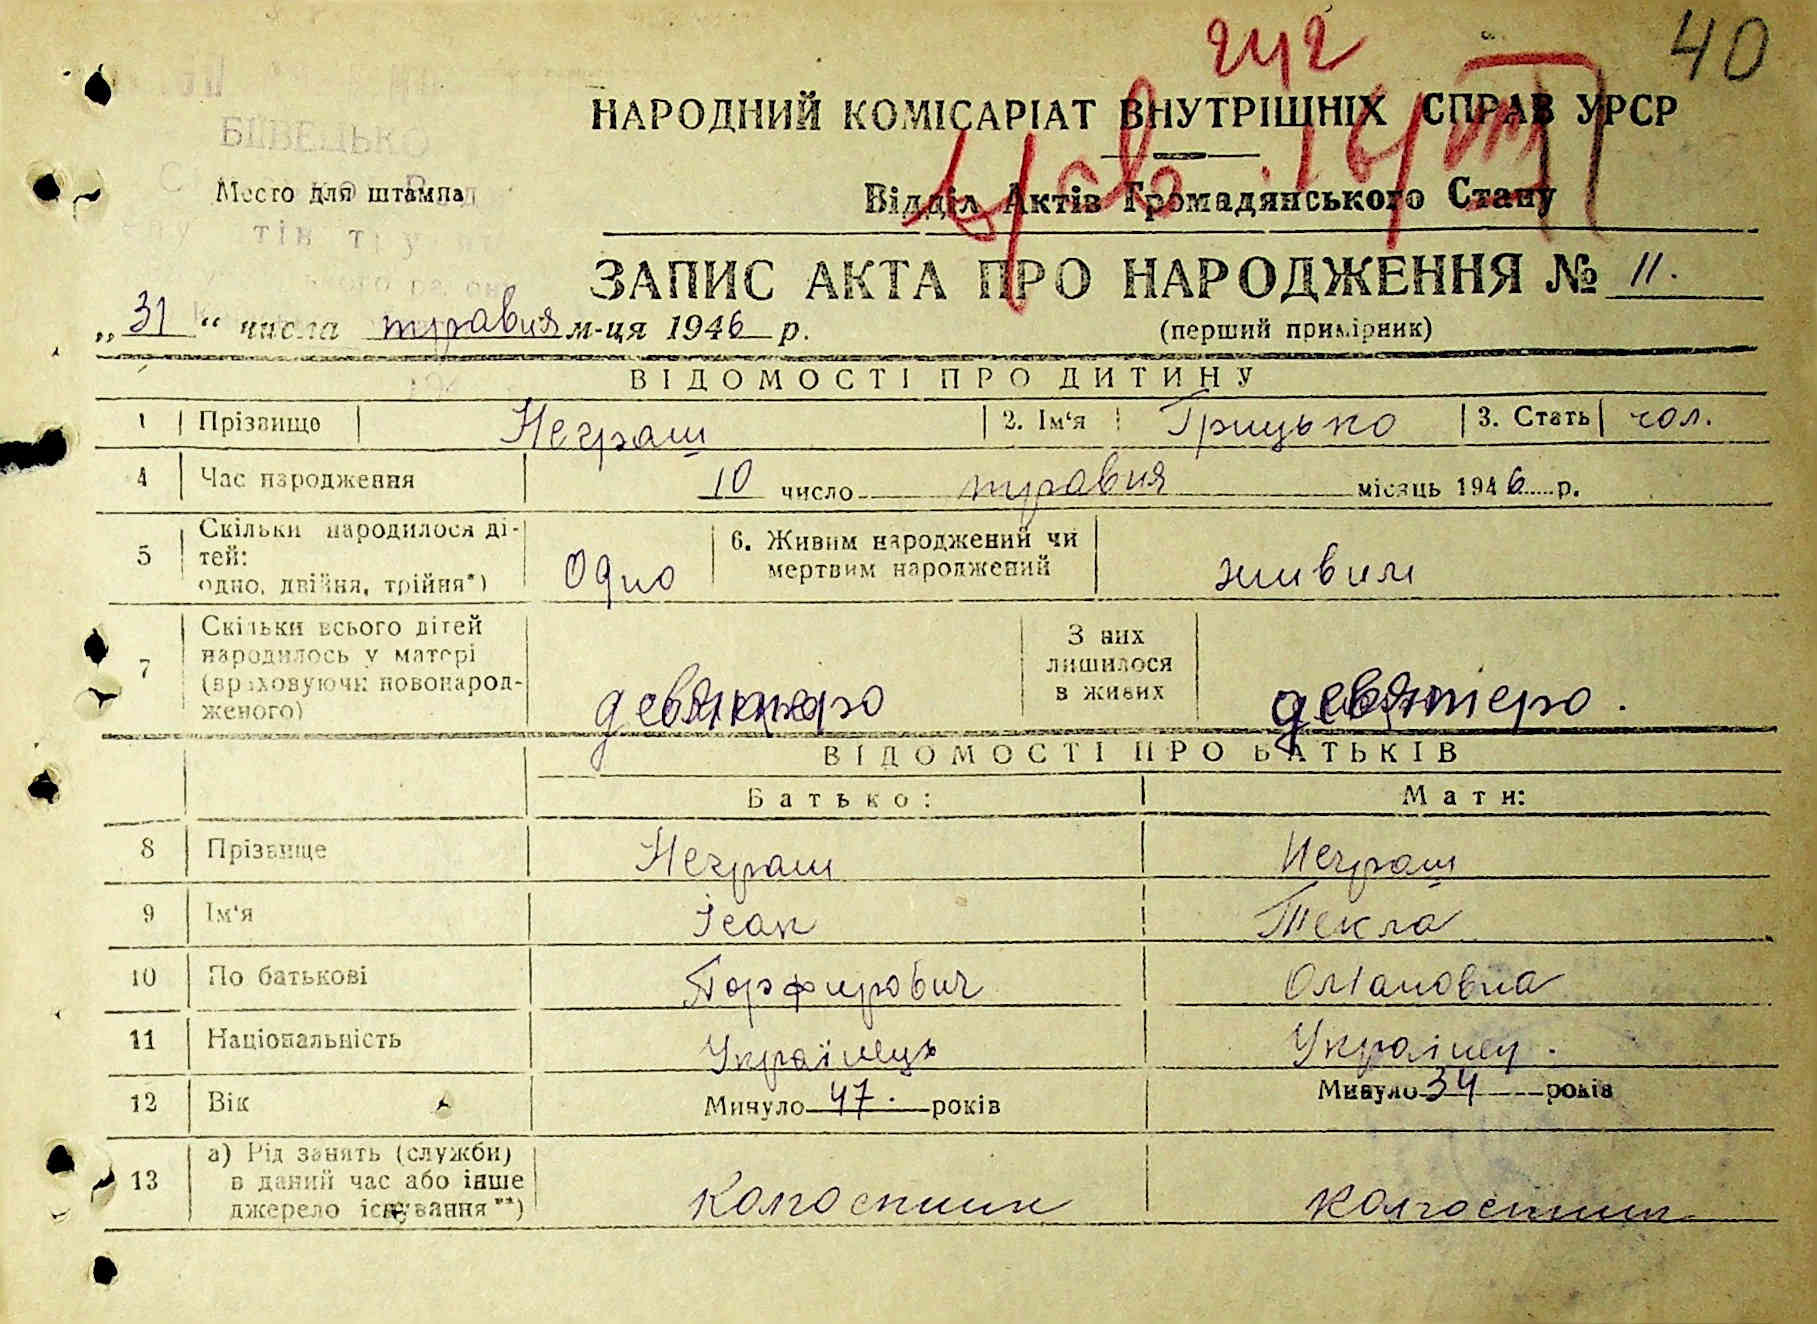 40
НАРОДНИЙ КОМІСАРІАТ ВНУТРІШНІХ СПРАВ УРСР
Место для штампа
Відділ Актів Громадянського Стану
ЗАПИС АКТА ПРО НАРОДЖЕННЯ № 11.
„31“ числа травня м-ця 1946 р.
(перший примірник)
ВІДОМОСТІ ПРО ДИТИНУ
1 Прізвище Неграш 2. Ім'я Грицько 3. Стать чол.
4 Час народження 10 число травня місяць 1946 р.
5 Скільки народилося ді-
тей:
одно, двійня, трійня*) Одно 6. Живим народжений чи
мертвим народжений живим
7 Скільки всього дітей
народилось у матері
(враховуючи новонарод-
женого) девятеро З них
лишилося
в живих девятеро.
ВІДОМОСТІ ПРО БАТЬКІВ
Батько: Мати:
8 Прізвище Неграш Неграш
9 Ім'я Іван Текла
10 По батькові Порфирович
11 Національність Українець Українц.
12 Вік Минуло 47. років Минуло 34 років
13 а) Рід занять (служби)
в даний час або інше
джерело існування**) Колгоспник Колгоспник